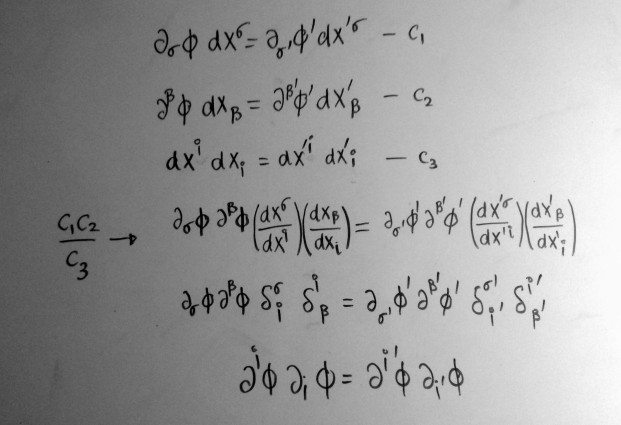 ∂_σ ϕ dx^σ = ∂_σ' ϕ' dx'^σ − C₁
∂^β ϕ dx_β = ∂^β' ϕ' dx'_β − C₂
dx^i dx_i = dx'^i dx'_i − C₃
C₁C₂/C₃ → ∂_σ ϕ ∂^β ϕ (dx^σ/dx^i)(dx_β/dx_i) = ∂_σ' ϕ' ∂^β' ϕ' (dx'^σ/dx'^i)(dx'_β/dx'_i)
∂_σ ϕ ∂^β ϕ δ^σ_i δ^i_β = ∂_σ' ϕ' ∂^β' ϕ' δ^σ'_i' δ^i'_β'
∂^i ϕ ∂_i ϕ = ∂^i' ϕ ∂_i' ϕ